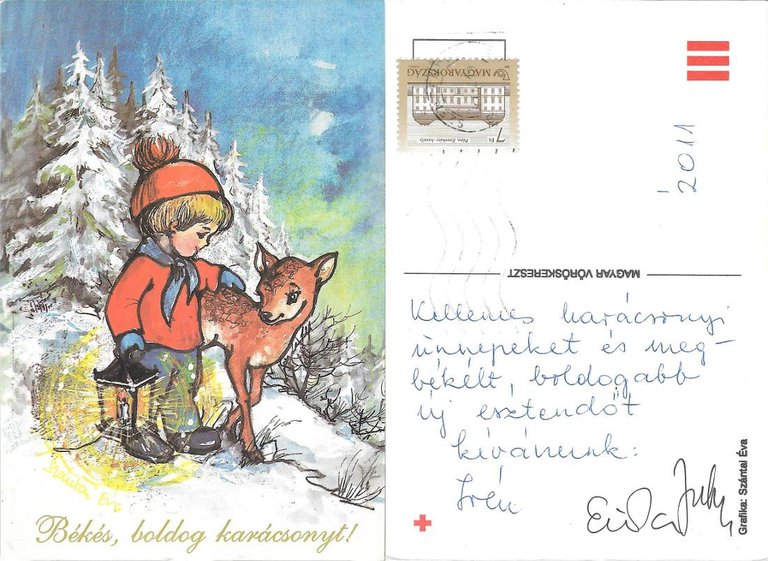 Szántai Éva
Békés, boldog karácsonyt!
MAGYARORSZÁG
Pápa, Esterházy-kastély
7 Ft
2011
MAGYAR VÖRÖSKERESZT
Kellemes karácsonyi
ünnepeket és meg-
békélt, boldogabb
új esztendőt
kívánunk:
Irén
Grafika: Szántai Éva